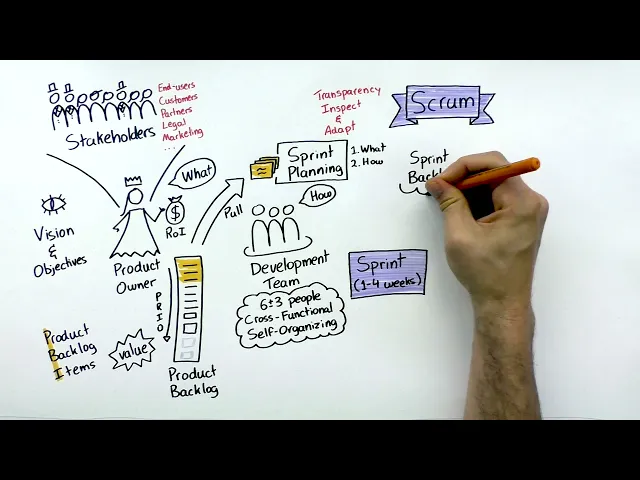 Scrum
Transparency
Inspect
&
Adapt
End-users
Customers
Partners
Legal
Marketing
...
Stakeholders
What
$
RoI
Vision
&
Objectives
Product
Owner
Pull
Sprint
Planning
1. What
2. How
How
Development
Team
6±3 people
Cross-Functional
Self-Organizing
Sprint
(1-4 weeks)
Sprint
PRIO
Product
Backlog
Items
value
Product
Backlog